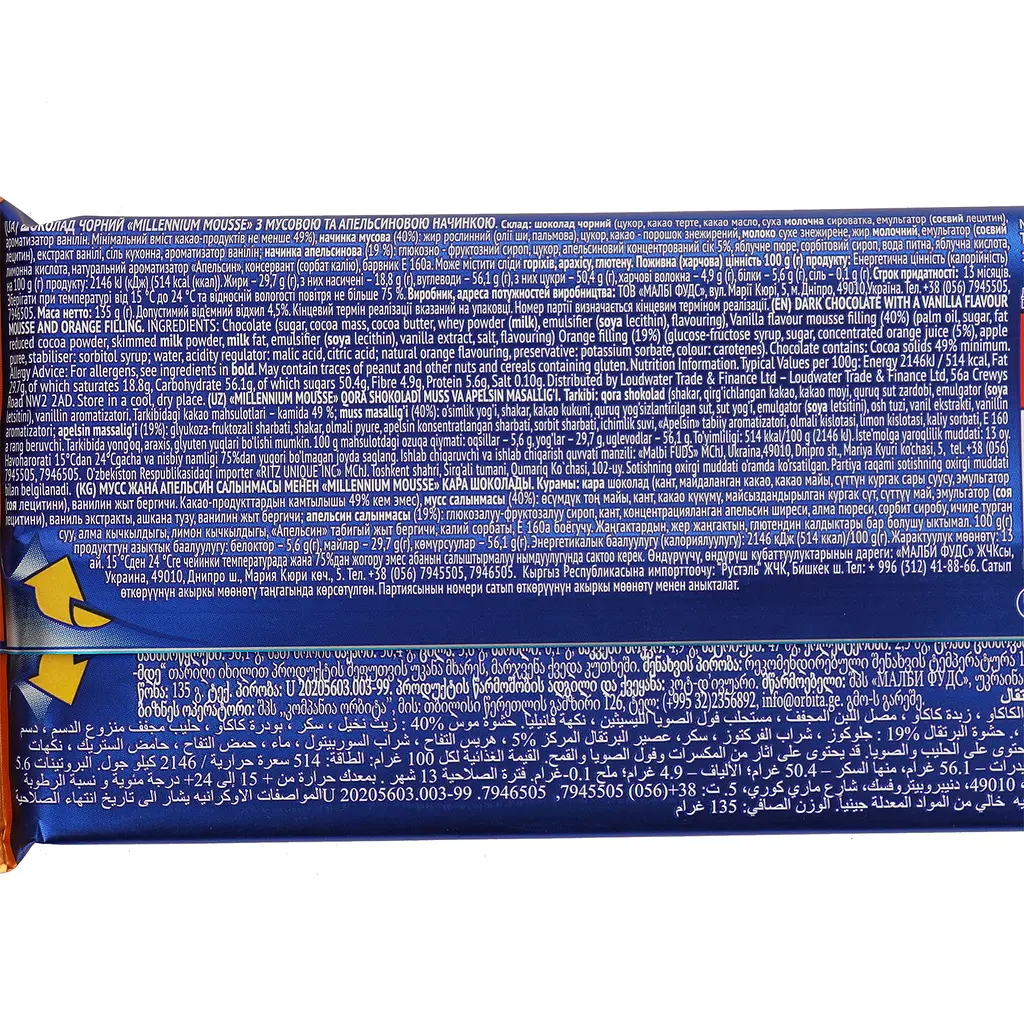 (UA) ШОКОЛАД ЧОРНИЙ «MILLENNIUM MOUSSE» З МУСОВОЮ ТА АПЕЛЬСИНОВОЮ НАЧИНКОЮ. Склад: шоколад чорний (цукор, какао терте, какао масло, суха молочна сироватка, емульгатор (соєвий лецитин),
ароматизатор ванілін. Мінімальний вміст какао-продуктів не менше 49%), начинка мусова (40%): жир рослинний (олії ши, пальмова), цукор, какао - порошок знежирений, молоко сухе знежирене, жир молочний, емульгатор (соєвий
лецитин), екстракт ванілі, сіль кухонна, ароматизатор ванілін), начинка апельсинова (19 %): глюкозно - фруктозний сироп, цукор, апельсиновий концентрований сік 5%, яблучне пюре, сорбітовий сироп, вода питна, яблучна кислота,
лимонна кислота, натуральний ароматизатор «Апельсин», консервант (сорбат калію), барвник Е 160а. Може містити сліди горіхів, арахісу, глютену. Поживна (харчова) цінність 100 g (г) продукту: Енергетична цінність (калорійність)
на 100 g(г) продукту: 2146 kJ (кДж) (514 kcal (ккал)). Жири – 29,7 g(г), з них насичені – 18,8 g(г), вуглеводи – 56,1 g(г), з них цукри – 50,4 g(г), харчові волокна – 4,9 g(г), білки – 5,6 g(г), сіль – 0,1 g(г). Строк придатності: 13 місяців.
Зберігати при температурі від 15 °С до 24 °С та відносній вологості повітря не більше 75 %. Виробник, адреса потужностей виробництва: ТОВ «МАЛБІ ФУДС», вул. Марії Кюрі, 5, м. Дніпро, 49010, Україна. Тел. +38 (056) 7945505,
7946505. Маса нетто: 135 g(г). Допустимий від'ємний відхил 4,5%. Кінцевий термін реалізації вказаний на упаковці. Номер партії визначається кінцевим терміном реалізації. (EN) DARK CHOCOLATE WITH A VANILLA FLAVOUR
MOUSSE AND ORANGE FILLING. INGREDIENTS: Chocolate (sugar, cocoa mass, cocoa butter, whey powder (milk), emulsifier (soya lecithin), flavouring), Vanilla flavour mousse filling (40%) (palm oil, sugar, fat
reduced cocoa powder, skimmed milk powder, milk fat, emulsifier (soya lecithin), vanilla extract, salt, flavouring) Orange filling (19%) (glucose-fructose syrup, sugar, concentrated orange juice (5%), apple
puree, stabiliser: sorbitol syrup; water, acidity regulator: malic acid, citric acid; natural orange flavouring, preservative: potassium sorbate, colour: carotenes). Chocolate contains: Cocoa solids 49% minimum.
Allergy Advice: For allergens, see ingredients in bold. May contain traces of peanut and other nuts and cereals containing gluten. Nutrition information. Typical Values per 100g: Energy 2146kJ / 514 kcal, Fat
29.7g, of which saturates 18.8g, Carbohydrate 56.1g, of which sugars 50.4g, Fibre 4.9g, Protein 5.6g, Salt 0.10g. Distributed by Loudwater Trade & Finance Ltd – Loudwater Trade & Finance Ltd, 56a Crewys
Road NW2 2AD. Store in a cool, dry place. (UZ) «MILLENNIUM MOUSSE» QORA SHOKOLADI MUSS VA APELSIN MASALLIG'I. Tarkibi: qora shokolad (shakar, qirg'ichlangan kakao, kakao moyi, quruq sut zardobi, emulgator (soya
letsitini), vanillin aromatizatori. Tarkibidagi kakao mahsulotlari – kamida 49 %; muss masallig'i (40%): o'simlik yog'i, shakar, kakao kukuni, quruq yog'sizlantirilgan sut, sut yog'i, emulgator (soya letsitini), osh tuzi, vanil ekstrakti, vanillin
aromatizatori; apelsin massalig'i (19%): glyukoza-fruktozali sharbat, shakar, olmali pyure, apelsin konsentratlangan sharbati, sorbit sharbati, ichimlik suvi, «Apelsin» tabiiy aromatizatori, olmali kislotasi, limon kislotasi, kaliy sorbati, E 160
a rang beruvchi. Tarkibida yong'oq, araxis, glyuten yuqlari bo'lishi mumkin. 100 g mahsulotdagi ozuqa qiymati: oqsillar – 5,6 g, yog'lar – 29,7 g, uglevodlar – 56,1 g. To'yimliligi: 514 kkal/100 g (2146 kJ). Iste'molga yaroqlilik muddati: 13 oy.
Havoharorati 15°Cdan 24°Cgacha va nisbiy namligi 75%dan yuqori bo'lmagan joyda saqlang. Ishlab chiqaruvchi va ishlab chiqarish quvvati manzili: «Malbi FUDS» MChJ, Ukraina,49010, Dnipro sh., Mariya Kyuri ko'chasi, 5, tel. +38 (056)
7945505, 7946505. O'zbekiston Respublikasidagi importer «RITZ UNIQUE INC» MChJ. Toshkent shahri, Sirg'ali tumani, Qumariq Ko'chasi, 102-uy. Sotishning oxirgi muddati o'ramda ko'rsatilgan. Partiya raqami sotishning oxirgi muddati
bilan belgilanadi. (KG) МУСС ЖАНА АПЕЛЬСИН САЛЫНМАСЫ МЕНЕН «MILLENNIUM MOUSSE» КАРА ШОКОЛАДЫ. Курамы: кара шоколад (кант, майдаланган какао, какао майы, сүттүн кургак сары суусу, эмульгатор
(соя лецитини), ванилин жыт бергичи. Какао-продукттардын камтылышы 49% кем эмес), мусс салынмасы (40%): өсүмдүк тоң майы, кант, какао күкүмү, майсыздандырылган кургак сүт, сүттүү май, эмульгатор (соя
лецитини), ваниль экстракты, ашкана тузу, ванилин жыт бергичи; апельсин салынмасы (19%): глюкозалуу-фруктозалуу сироп, кант, концентрацияланган апельсин ширеси, алма пюреси, сорбит сиробу, ичиле турган
суу, алма кычкылдыгы, лимон кычкылдыгы, «Апельсин» табигый жыт бергичи, калий сорбаты, Е 160а боёгучу. Жаңгактардын, жер жаңгактын, глютендин калдыктары бар болушу ыктымал. 100 g(г)
продукттун азыктык баалуулугу: белоктор – 5,6 g(г), майлар – 29,7 g(г), көмүрсуулар – 56,1 g(г). Энергетикалык баалуулугу (калориялуулугу): 2146 кДж (514 ккал)/100 g(г). Жарактуулук мөөнөтү: 13
ай. 15 °Сден 24 °Сге чейинки температурада жана 75%дан жогору эмес абанын салыштырмалу нымдуулугунда сактоо керек. Өндүрүүчү, өндүрүш кубаттуулуктарынын дареги: «МАЛБИ ФУДС» ЖЧКсы,
Украина, 49010, Днипро ш., Мария Кюри көч., 5. Тел. +38 (056) 7945505, 7946505. Кыргыз Республикасына импорттоочу: "Рустэль" ЖЧК, Бишкек ш. Тел: + 996 (312) 41-88-66. Сатып
өткөрүүнүн акыркы мөөнөтү таңгагында көрсөтүлгөн. Партиясынын номери сатып өткөрүүнүн акыркы мөөнөтү менен аныкталат.
-მდე" თარიღი იხილით პროდუქტის შეფუთვის უკანა მხარეს, მარჯვენა ქვედა კუთხეში. შენახვის პირობა: რეკომენდირებული შენახვის ტემპერატურა 1
წონა: 135 გ. ტექ. პირობა: U 20205603.003-99. პროდუქტის წარმოშობის ადგილი და ქვეყანა: კოტ-დ ივუარი. მწარმოებელი: შპს „МАЛБИ ФУДС», უკრაინა
ბიზნეს ოპერატორი: შპს „კომპანია ორბიტა", მის: თბილისი წერეთლის გამზირი 126, ტელ: (+995 32)2356892, info@orbita.ge. გმო-ს გარეშე.
الكاكاو ، زبدة كاكاو ، مصل اللبن المجفف ، مستحلب فول الصويا الليسيثين ، نكهة فانيليا. حشوة موس 40% : زيت نخيل ، سكر ، بودرة كاكاو ، حليب مجفف منزوع الدسم ، دسم
، حشوة البرتقال 19% : جلوكوز ، شراب الفركتوز ، سكر، عصير البرتقال المركز 5% ، هريس التفاح ، شراب السوربيتول ، ماء ، حمض التفاح ، حامض الستريك ، نكهات
توي على الحليب والصويا. قد يحتوي على آثار من المكسرات وفول الصويا والقمح. القيمة الغذائية لكل 100 غرام: الطاقة: 514 سعرة حرارية / 2146 كيلو جول. البروتينات 5.6
يدرات – 56.1 غرام، منها السكر – 50.4 غرام؛ الألياف – 4.9 غرام؛ ملح 0.1-غرام. فترة الصلاحية 13 شهر . بمعدك حرارة من + 15 الى 24+ درجة مئوية و نسبة الرطوبة
49010، دنيبروبيتروفسك، شارع ماري كوري، 5. ت: 38+(056) 7945505، 7946505. U 20205603.003-99المواصفات الاوكرانيه يشار الى تاريخ انتهاء الصلاحية
يه خالي من المواد المعدلة جينيا. الوزن الصافي: 135 غرام